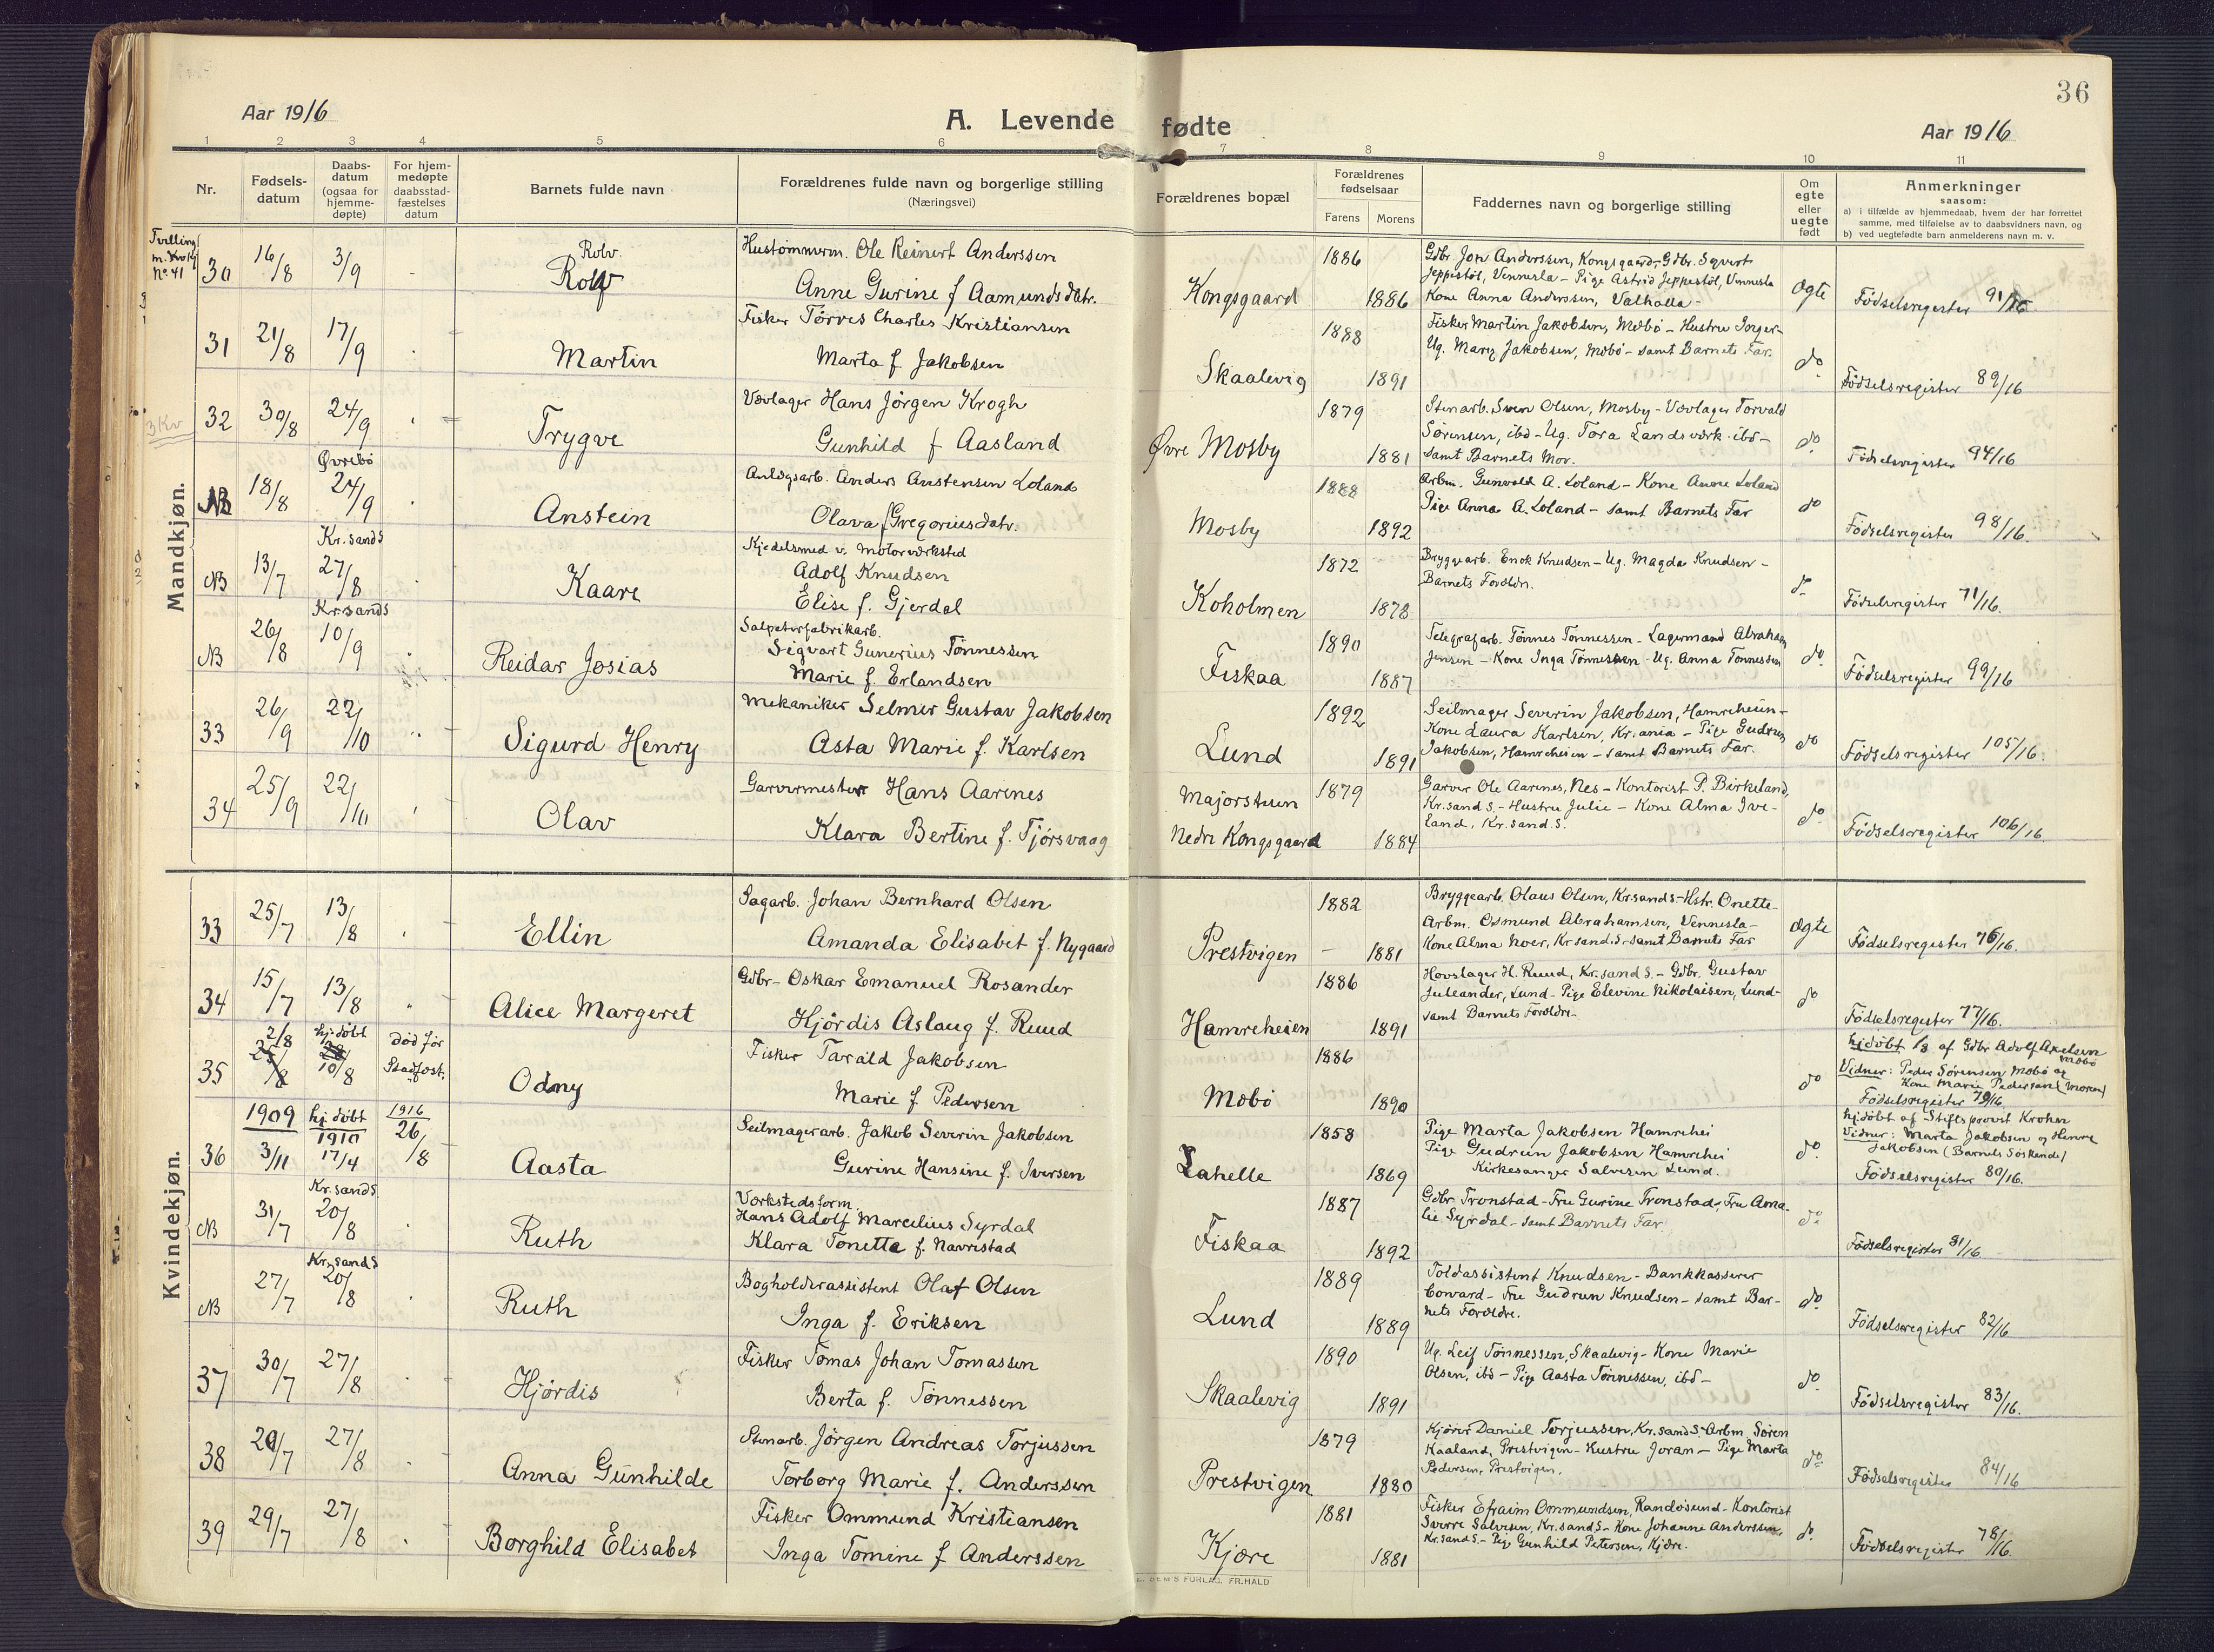 36
Aar 1916
A. Levende fødte
Aar 1916
1 2 3 4 5 6 7 8 9 10 11
Nr.
Fødsels-
datum
Daabs-
datum
(ogsaa for
hjemme-
døpte)
For hjem-
medøpte
daabsstad-
fæstelses
datum
Barnets fulde navn
Forældrenes fulde navn og borgerlige stilling
(Næringsvei)
Forældrenes bopæl
Forældrenes
fødselsaar
Farens Morens
Faddernes navn og borgerlige stilling
Om
egte
eller
uegte
født
Anmerkninger
saasom:
a) i tilfælde av hjemmedaab, hvem der har forrettet
samme, med tilføielse av to daabsvidners navn, og
b) ved uegtefødte barn anmelderens navn m. v.
Mandkjøn.
Tvilling
No 41
30 16/8 3/9
Rolv.
Rolf
Hustømmerm. Ole Reinert Anderssen
Anne Gurine f Aamundsdatr.
Kongsgaard 1886 1886
Gdbr. Jon Anderssen, Kongsgaard - Gdbr. Sigvert
Jeppestøl, Vennesla - Pige Astrid Jeppestøl, Vennesla
Kone Anna Anderssen, Valhalla -
ægte
Fødselsregister 91/16
31 21/8 17/9
Martin
Fisker Tørres Charles Kristiansen
Marta f. Jakobsen
Skaalevig 1888 1891
Fisker Martin Jakobsen, Mæbø - Hustru Inger -
Ug. Mary Jakobsen, Mæbø - samt Barnets Far.
do
Fødselsregister 89/16
3 Kv
32 30/8 24/9
Trygve
Vævlager Hans Jörgen Krogh
Gunhild f Aasland
Øvre Mosby 1879 1881
Stenarb. Sven Olsen, Mosby - Vævlager Torvald
Sørensen, ibd - Ug. Tora Landsværk ibd -
samt Barnets Mor.
do
Fødselsregister 94/16
NB 18/8 Øvrebø 24/9
Anstein
Anlægsarb. Anders Anstensen Loland
Olava f Gregoriusdatr.
Mosby 1888 1892
Arbm. Gunvald A. Loland - Kone Anne Loland
Pige Anna A. Loland - samt Barnets Far
do
Fødselsregister 98/16.
NB 13/7 Kr.sand S 27/8
Kaare
Kjedelsmed v. Motorværksted
Adolf Knudsen
Elise f. Gjerdal
Koholmen 1872 1878
Bryggearb. Enok Knudsen - Ug. Magda Knudsen -
Barnets Foræld.
do
Fødselsregister 71/16.
NB 26/8 Kr.sand S 10/9
Reidar Josias
Salpeterfabrikarb.
Sigvart Gunerius Tønnessen
Marie f. Erlandsen
Fiskaa 1890 1887
Telegrafarb. Tønnes Tønnessen - Lagermand Abraham
Jensen - Kone Inga Tønnessen - Ug. Anna Tønnessen
do
Fødselsregister 99/16
33 26/9 22/10
Sigurd Henry
Mekaniker Selmer Gustav Jakobsen
Asta Marie f. Karlsen
Lund 1892 1891
Seilmager Severin Jakobsen, Hamreheien -
Kone Laura Karlsen, Kr.ania - Pige Gudrun
Jakobsen, Hamreheien - samt Barnets Far.
do
Fødselsregister 105/16.
34 25/9 22/10
Olav
Garvermester Hans Aarenes
Klara Bertine f. Tjörsvaag
Majorstuen
Nedre Kongsgaard 1879 1884
Garver Ole Aarenes, Nes - Kontorist P. Birkeland,
Kr.sand S. - Hustru Julie - Kone Alma Ive-
land, Kr.sand. S.
do
Fødselsregister 106/16.
Kvindekjøn.
33 25/7 13/8
Ellin
Sagarb. Johan Bernhard Olsen
Amanda Elisabet f. Nygaard
Prestvigen 1882 1881
Bryggearb. Olaus Olsen, Kr.sand S - Hstr. Onette -
Arbm. Osmund Abrahamsen, Vennesla -
Kone Alma Hoer, Kr.sand.S. samt Barnets Far
ægte
Fødselsregister 76/16.
34 15/7 13/8
Alice Margeret
Gdbr - Oskar Emanuel Rosander
Hjørdis Aslaug f. Ruud
Hamreheien 1886 1891
Hovslager H. Ruud, Kr.sand S. - Gdbr. Gustav
Juleander, Lund - Pige Elevine Nikolaisen, Lund -
samt Barnets Forældre.
do
Fødselsregister 77/16.
35 2/8 hj.døbt 10/8 død før Stadfæst.
Odny
Fisker Tarald Jakobsen
Marie f Pedersen
Mæbø 1886 1890
do
hj.døbt af Gdbr. Adolf Axelsen
Mæbø
Vidner: Peder Sørensen Mæbø og
Kone Marie Pedersen (Moren)
Fødselsregister 79/16
36 1909 3/11 hj.døbt 1910 17/4 1916 26/8
Aasta
Seilmagerarb. Jakob Severin Jakobsen
Gurine Hansine f. Iversen
Lahelle 1858 1869
Pige Marta Jakobsen Hamrehei
Pige Gudrun Jakobsen Hamrehei
Kirkesanger Salvesen Lund.
do
hj.døbt af Stiftsprovst Krohen
Vidner: Marta Jakobsen og Henry
Jakobsen (Barnets Søskende)
Fødselsregister 80/16.
NB 31/7 Kr.sand S 20/8
Ruth
Værkstedsform.
Hans Adolf Marcelius Syrdal
Klara Tonette f. Navrestad
Fiskaa 1887 1892
Gdbr Tronstad - Fru Gurine Tronstad, Fru Ama-
lie Syrdal - samt Barnets Far
do
Fødselsregister 81/16
NB 27/7 Kr.sand S 20/8
Ruth
Bogholderassistent Olaf Olsen
Inga f. Eriksen
Lund 1889 1889
Toldassistent Knudsen - Bankkasserer
Coward - Fru Gudrun Knudsen - samt Bar-
nets Forældre.
do
Fødselsregister 82/16
37 30/7 27/8
Hjördis
Fisker Tomas Johan Tomassen
Berta f. Tønnessen
Skaalevig 1890 1891
Ug. Leif Tønnessen, Skaalevig - Kone Marie
Olsen, ibd - Pige Aasta Tønnessen, ibd -
do
Fødselsregister 83/16.
38 29/7 27/8
Anna Gunhilde
Stenarb. Jørgen Andreas Torjussen
Torborg Marie f. Anderssen
Prestvigen 1879 1880
Kjører Daniel Torjussen, Kr.sand S - Arbm. Søren
Kaaland, Prestvigen - Hustru Joran - Pige Marta
Pedersen, Prestvigen.
do
Fødselsregister 84/16
39 29/7 27/8
Borghild Elisabet
Fisker Ommund Kristiansen
Inga Tomine f Anderssen
Kjære 1881 1881
Fisker Efraim Ommundsen, Randøsund - Kontorist
Sverre Salvesen, Kr.sand S - Kone Johanne Anderssen,
Kr.sand S. - Pige Gunhild Petersen, Kjære.
do.
Fødselsregister 78/16.
SEM'S FORLAG, FR.HALD